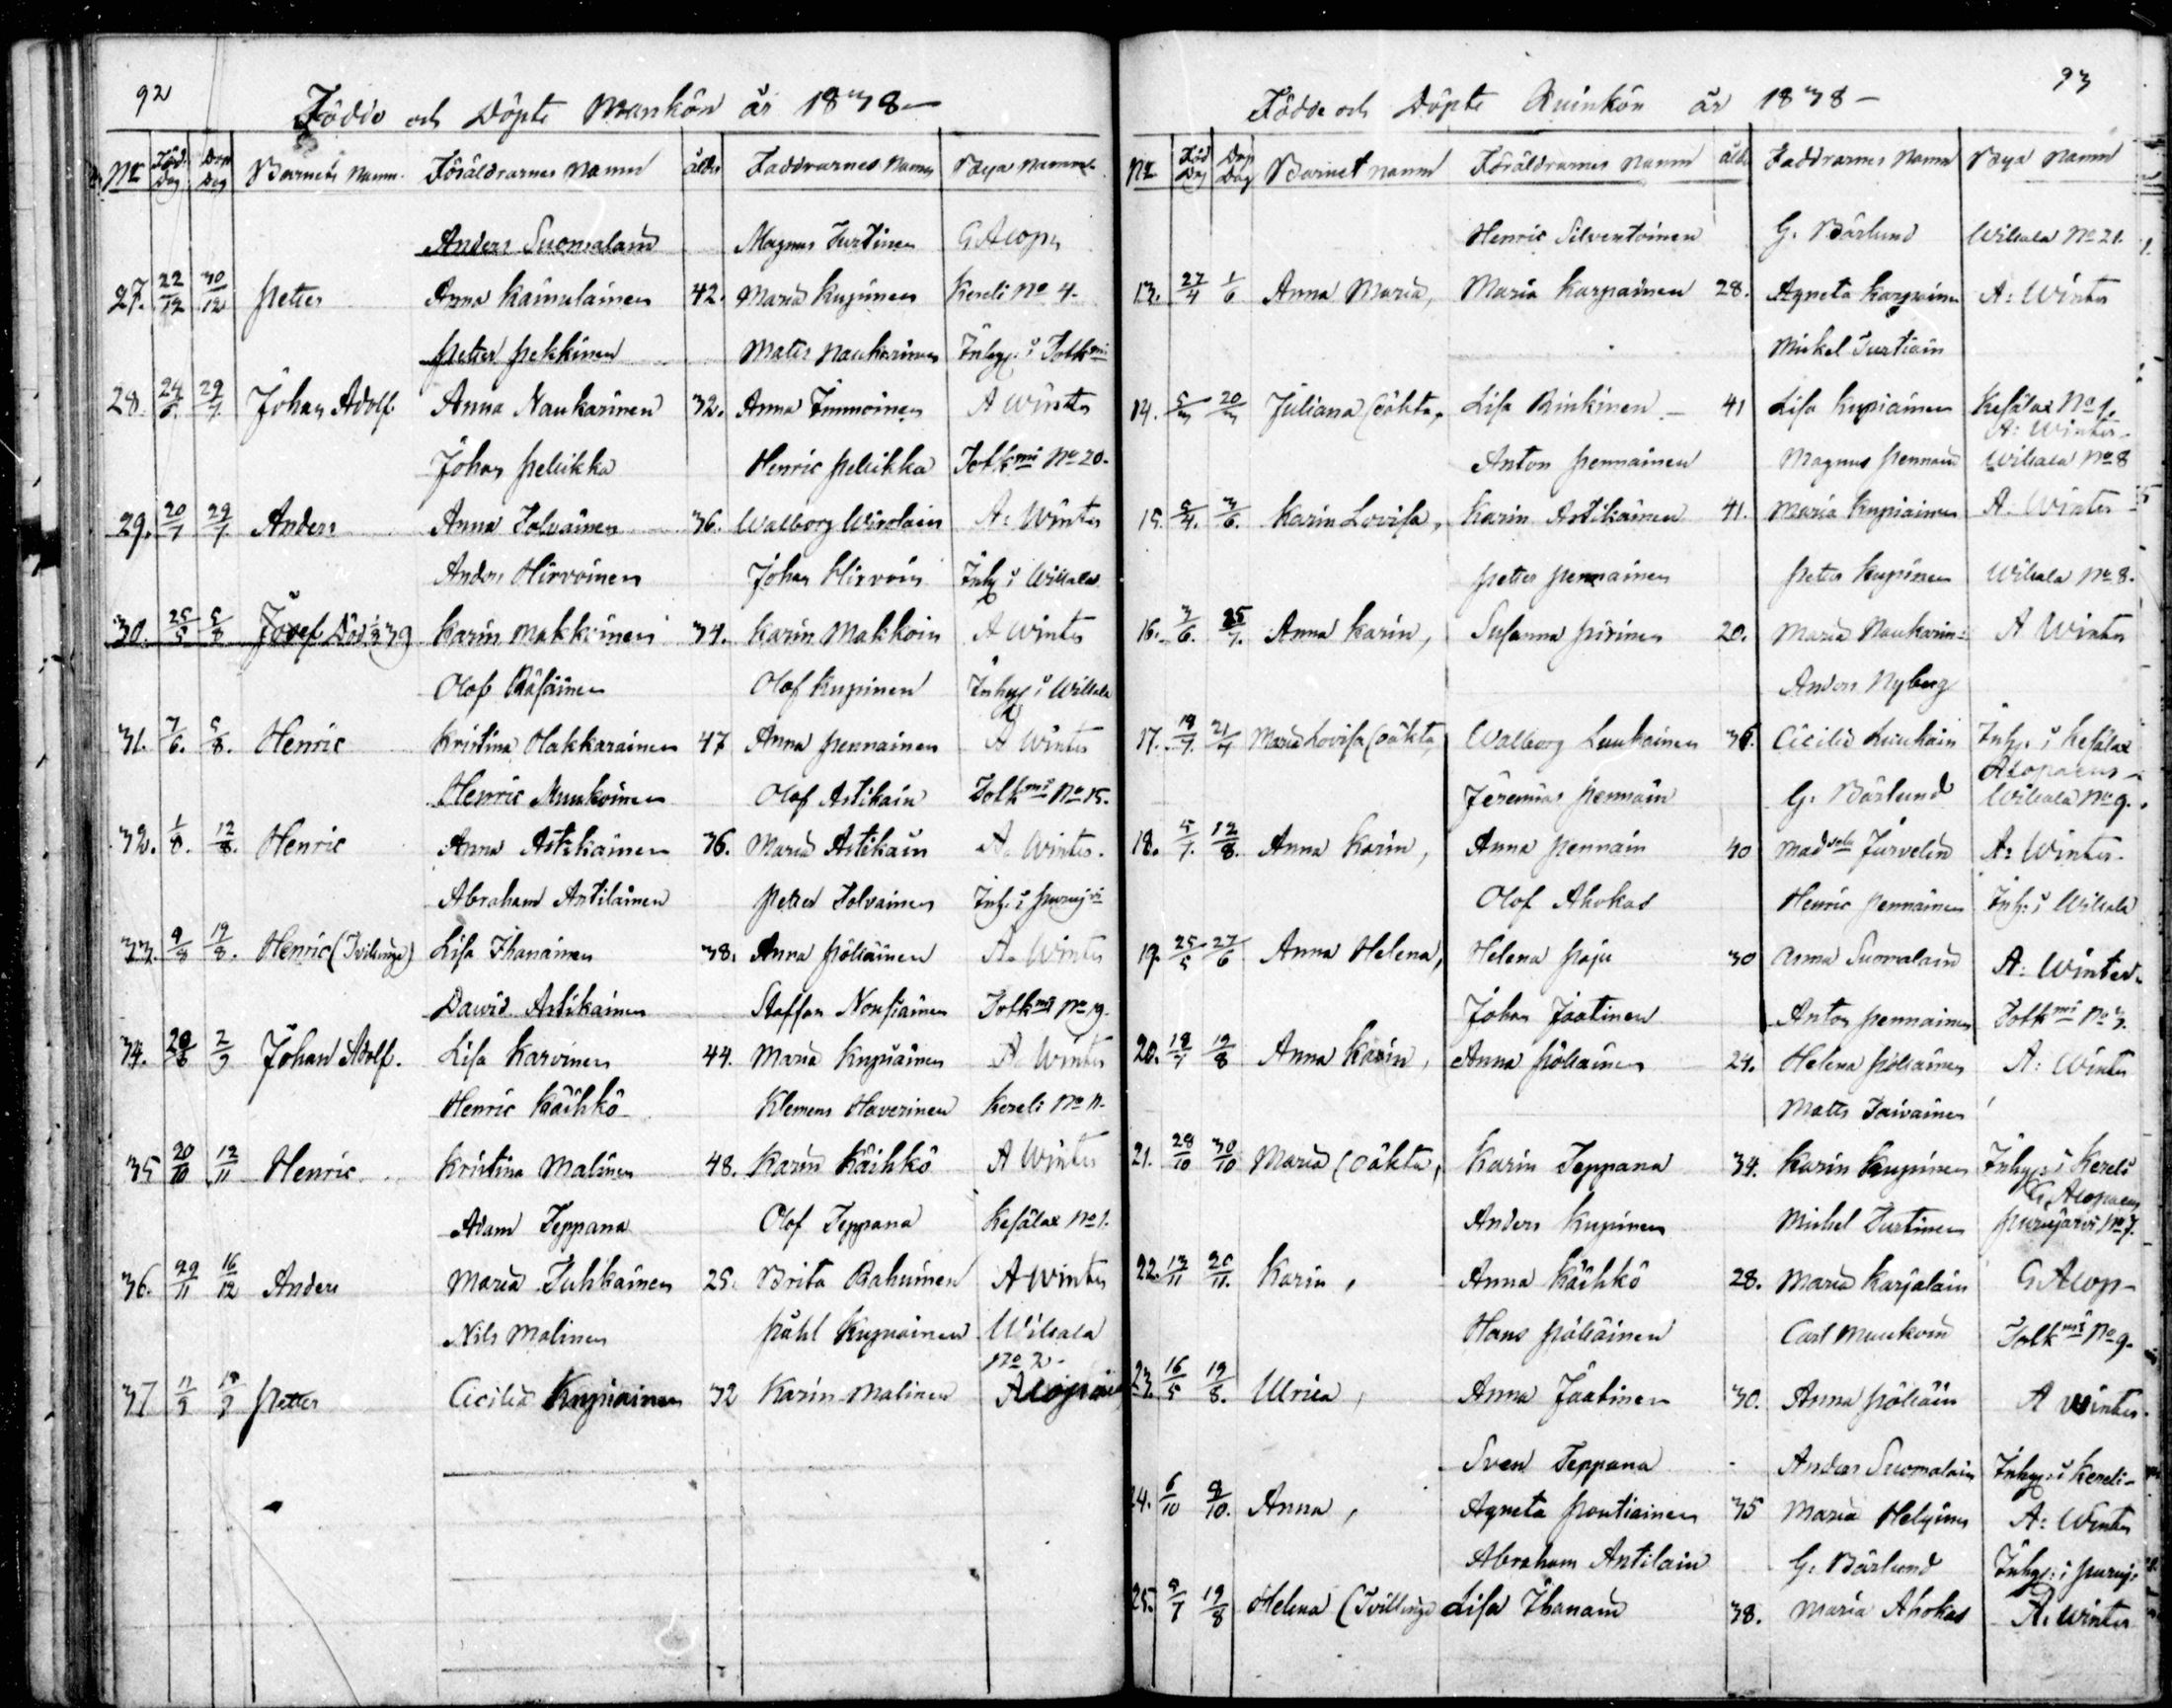 92
Födde och Döpte Mankön år 1838 —
No Föd. Dag Dop Dag Barnets Namn Föräldrarnes Namn ålder Faddrarnes Namn Bya Namn
Anders Suomalain Magnus Turtinen G Alop
27. 22/12 30/12 Petter Anna Kainulainen 42. Maria Kupinen Kereli No 4.
Petter Pekkinen Matts Naukarinen Inhys. i Tolkmi
28. 24/6. 29/7. Johan Adolf. Anna Naukarinen 32. Anna Immoinen A Winter
Johan Pelükka Henric Pelükka Tolkmi No 20.
29. 20/7 29/7. Anders Anna Tolvainen 36. Walborg Wirolain A: Winter
Anders Hirvoinen Johan Hirvoin Inhy i Wiliala
30. 25/5 5/8 Josef Död 39 Karin Makkoinen 34. Karin Makkoin A Winter
Olof Räsäinen Olof Kupinen Inhys i Wiliala
31. 7/6. 5/8. Henric Kristina Hakkarainen 47 Anna Pennainen A Winter
Henric Muukoinen Olof Astikain Tolkmi No 15.
32. 1/8. 12/8. Henric Anna Astikainen 36. Maria Astikain A. Winter.
Abraham Antilainen Petter Tolvainen Inh. i Puruj
33. 9/8 19/8. Henric (Tvillinge) Lisa Ihanainen 38. Anna Pöllänen A. Winter
David Astikainen Staffan Nousiainen Tolkmi No 19.
34. 20/8 2/9 Johan Adolf. Lisa Karvinen 44. Maria Kupiainen A Winter
Henric Käihkö Klemens Haverinen Kereli No 11.
35 20/10 12/11 Henric Kristina Malinen 48. Karin Käihkö A Winter
Adam Teppana Olof Teppana Kesälax No 1.
36. 29/11 16/12 Anders Maria Tuhkainen 25. Brita Rahuinen A Winter
Nils Malinen Påhl Kupiainen Wiliala
No 2.
37 11/9 18/9 Petter Cicilia Kupiainen 32 Karin Malinen Alopæi
93
Födde och Döpte Quinkön år 1838 —
No Föd Dag Dop Dag Barnet namn Föräldrarnes Namn ålde Faddrarnes Namn Bya Namn
Henric Silventoinen G. Bärlund Wiliala No 21.
13. 27/4 1/6 Anna Maria, Maria Karpainen 28. Agneta Karpainen A: Winter
Mickel Turtiain
14. 5/3 20/3 Juliana (oäkta, Lisa Rinkinen — 41 Lisa Kupiainen Kesälax No 1.
A: Winter
Anton Pennainen Magnus Pennain Wiliala No 8
15. 5/4. 3/6. Karin Lovisa, Karin Astikainen 41. Maria Kupiainen A. Winter
Petter Pennainen Petter Kupinen Wiliala No 8.
16. 3/6. 25/7. Anna Karin, Susanna Pirinen 20. Maria Naukarin: A Winter
Anders Nyberg
17. 19/7. 21/7 Maria Lovisa (oäkta, Walborg Luukainen 36. Cicilia Luukain Inhys i Kesälax
Alopaeus
Jeremias Pennain G. Bärlund Wiliala No 9.
18. 5/7. 12/8. Anna Karin, Anna Pennain 40 Mad Jurvelin A: Winter.
Olof Ahokas Henric Pennainen Inh: i Wiliala
19. 25/5 27/6 Anna Helena, Helena Paju 30 Anna Suomalain A: Winter.
Johan Jaatinen Anton Pennainen Tolkmi No 3.
20. 18/7 19/8 Anna Karin, Anna Pöllänen 24. Helena Pölläinen A: Winter
Matts Taivainen
21. 28/10 30/10 Maria (oäkta, Karin Teppana 34. Karin Kupinen Inhys i Kereli
G. Alopaeus
Anders Kupinen Mickel Turtinen Purujärvi No 7.
22. 13/11 20/11. Karin, Anna Käihkö 28. Maria Karjalain G Alop
Hans Pölläinen Carl Muukoin Tolkmi No 9.
23. 16/5 19/8. Ulrica, Anna Jaatinen 30. Anna Pölläin A Winter.
Sven Teppana Anders Suomalain Inhys i Kereli
24. 6/10 8/10. Anna, Agneta Poutiainen 35 Maria Helyinen A: Winter
Abraham Antilain G. Bärlund Inhys. i Puruj.
25. 9/7 19/8 Helena (Tvillinge Lisa Ihanain 38. Maria Ahokas A. Winter